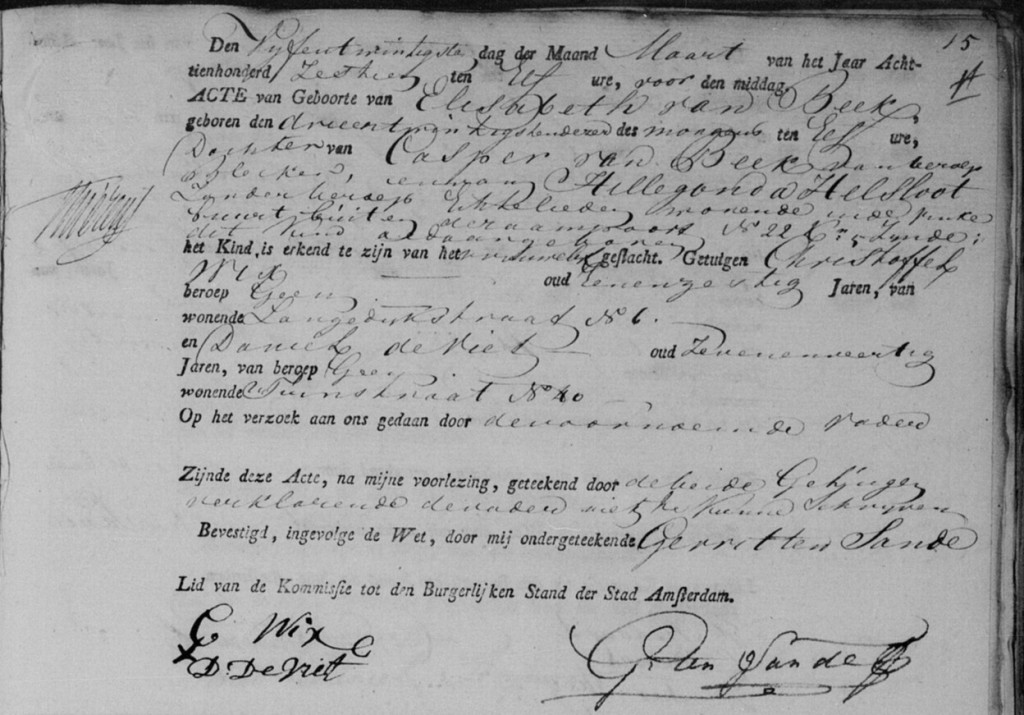 15
Den Vyfentwintigste dag der Maand Maart van het Jaar Acht-
tienhonderd Zesthien ten Elf ure, voor den middag,
ACTE van Geboorte van Elisabeth van Beek
geboren den drieentwintigsten dezer des morgens ten Elf ure,
Dochter van Casper van Beek van beroep
en van Hillegonda Helsloot
Zynder beroep Echtelieden wonende in de Vinke
buurt buiten de raampoort No 22 Zynde
dit kind aldaar geboren
het Kind, is erkend te zijn van het vrouwelyk geslacht. Getuigen Christoffel
Wix oud Jaren, van
beroep Geen
wonende Langedykstraat No 6.
en Daniel de Viet oud Zevenenveertig
Jaren, van beroep Geen
wonende Tuinstraat No 40
Op het verzoek aan ons gedaan door de voornoemde vader
Zijnde deze Acte, na mijne voorlezing, geteekend door de beide Getuigen
verklarende de vader niet te kunne schryven
Bevestigd, ingevolge de Wet, door mij ondergeteekende Gerrit ten Sande
Lid van de Kommissie tot den Burgerlijken Stand der Stad Amsterdam.
C Wix
D. De Viet
G. ten Sande